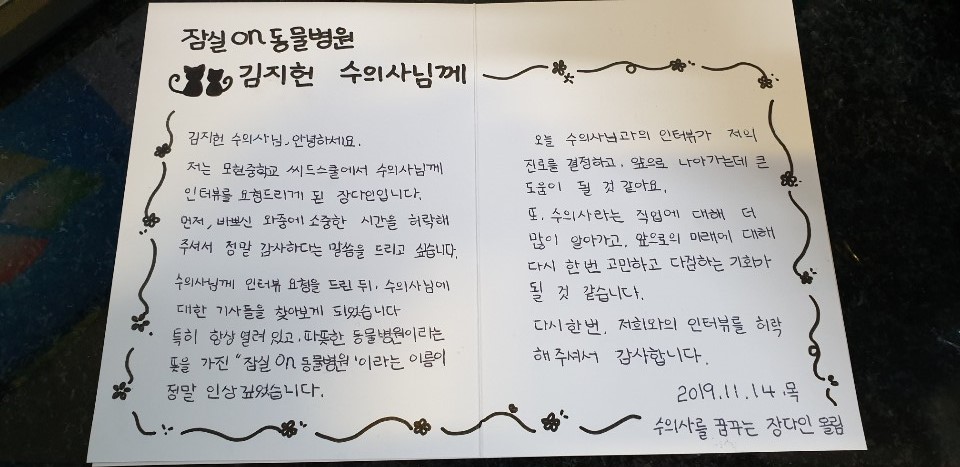 잠실 on 동물병원
김지헌 수의사님께
김지헌 수의사님, 안녕하세요.
저는 모현중학교 씨드스쿨에서 수의사님께
인터뷰를 요청드리게 된 장다인입니다.
먼저, 바쁘신 와중에 소중한 시간을 허락해
주셔서 정말 감사하다는 말씀을 드리고 싶습니다.
수의사님께 인터뷰 요청을 드린 뒤, 수의사님에
대한 기사들을 찾아보게 되었습니다
특히 항상 열려 있고, 따뜻한 동물병원이라는
뜻을 가진 "잠실 On 동물병원"이라는 이름이
정말 인상 깊었습니다.
오늘 수의사님과의 인터뷰가 저의
진로를 결정하고, 앞으로 나아가는데 큰
도움이 될 것 같아요.
또, 수의사라는 직업에 대해 더
많이 알아가고, 앞으로의 미래에 대해
다시 한번 고민하고 다짐하는 기회가
될 것 같습니다.
다시한번, 저희와의 인터뷰를 허락
해주셔서 감사합니다.
2019.11.14.목
수의사를 꿈꾸는 장다인 올림